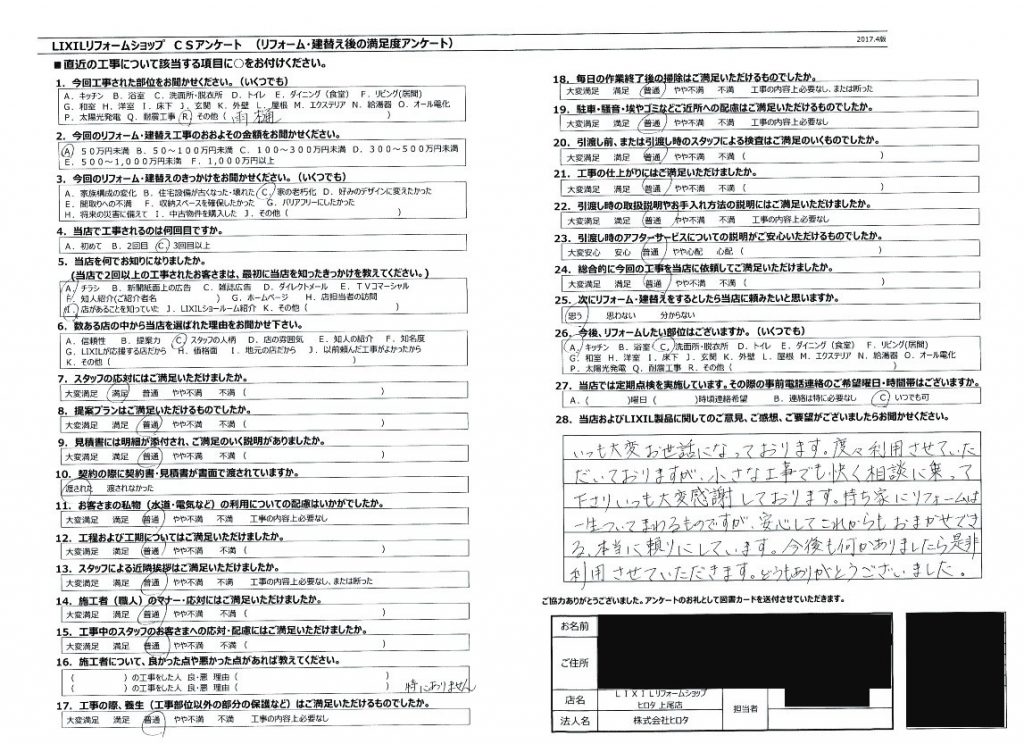 LIXILリフォームショップ CSアンケート （リフォーム・建替え後の満足度アンケート）
2017.4版
■直近の工事について該当する項目に○をお付けください。
1．今回工事された部位をお聞かせください。（いくつでも）
A．キッチン B．浴室 C．洗面所・脱衣所 D．トイレ E．ダイニング（食堂） F．リビング(居間)
G．和室 H．洋室 I．床下 J．玄関 K．外壁 L．屋根 M．エクステリア N．給湯器 O．オール電化
P．太陽光発電 Q．耐震工事 R．その他（ 雨樋 ）
2．今回のリフォーム・建替え工事のおおよその金額をお聞かせください。
A．50万円未満 B．50～100万円未満 C．100～300万円未満 D．300～500万円未満
E．500～1,000万円未満 F．1,000万円以上
3．今回のリフォーム・建替えのきっかけをお聞かせください。（いくつでも）
A．家族構成の変化 B．住宅設備が古くなった・壊れた C．家の老朽化 D．好みのデザインに変えたかった
E．間取りへの不満 F．収納スペースを確保したかった G．バリアフリーにしたかった
H．将来の災害に備えて I．中古物件を購入した J．その他（ ）
4．当店で工事されるのは何回目ですか。
A．初めて B．2回目 C．3回目以上
5．当店を何でお知りになりましたか。
(当店で2回以上の工事されたお客さまは、最初に当店を知ったきっかけを教えてください。)
A．チラシ B．新聞紙面上の広告 C．雑誌広告 D．ダイレクトメール E．TVコマーシャル
F．知人紹介(ご紹介者名 ) G．ホームページ H．店担当者の訪問
I．店があることを知っていた J．LIXILショールーム紹介 K．その他（ ）
6．数ある店の中から当店を選ばれた理由をお聞かせ下さい。
A．信頼性 B．提案力 C．スタッフの人柄 D．店の雰囲気 E．知人の紹介 F．知名度
G．LIXILが応援する店だから H．価格面 I．地元の店だから J．以前頼んだ工事がよかったから
K．その他（ ）
7．スタッフの応対にはご満足いただけましたか。
大変満足 満足 普通 やや不満 不満（ ）
8．提案プランはご満足いただけるものでしたか。
大変満足 満足 普通 やや不満 不満（ ）
9．見積書には明細が添付され、ご満足のいく説明がありましたか。
大変満足 満足 普通 やや不満 不満（ ）
10．契約の際に契約書・見積書が書面で渡されていますか。
渡された 渡されなかった
11．お客さまの私物（水道・電気など）の利用についての配慮はいかがでしたか。
大変満足 満足 普通 やや不満 不満 工事の内容上必要なし
12．工程および工期についてはご満足いただけましたか。
大変満足 満足 普通 やや不満 不満（ ）
13．スタッフによる近隣挨拶はご満足いただけましたか。
大変満足 満足 普通 やや不満 不満 工事の内容上必要なし、または断った
14．施工者（職人）のマナー・応対にはご満足いただけましたか。
大変満足 満足 普通 やや不満 不満（ ）
15．工事中のスタッフのお客さまへの応対・配慮にはご満足いただけましたか。
大変満足 満足 普通 やや不満 不満（ ）
16．施工者について、良かった点や悪かった点があれば教えてください。
（ ）の工事をした人 良・悪 理由（ ）
（ ）の工事をした人 良・悪 理由（ ） 特にありません
17．工事の際、養生（工事部位以外の部分の保護など）はご満足いただけるものでしたか。
大変満足 満足 普通 やや不満 不満 工事の内容上必要なし
18．毎日の作業終了後の掃除はご満足いただけるものでしたか。
大変満足 満足 普通 やや不満 不満 工事の内容上必要なし、または断った
19．駐車・騒音・埃やゴミなどご近所への配慮はご満足いただけるものでしたか。
大変満足 満足 普通 やや不満 不満 工事の内容上必要なし
20．引渡し前、または引渡し時のスタッフによる検査はご満足のいくものでしたか。
大変満足 満足 普通 やや不満 不満（ ）
21．工事の仕上がりにはご満足いただけましたか。
大変満足 満足 普通 やや不満 不満（ ）
22．引渡し時の取扱説明やお手入れ方法の説明にはご満足いただけましたか。
大変満足 満足 普通 やや不満 不満 工事の内容上必要なし
23．引渡し時のアフターサービスについての説明がご安心いただけるものでしたか。
大変安心 安心 普通 やや心配 心配（ ）
24．総合的に今回の工事を当店に依頼してご満足いただけましたか。
大変満足 満足 普通 やや不満 不満（ ）
25．次にリフォーム・建替えをするとしたら当店に頼みたいと思いますか。
思う 思わない 分からない
26．今後、リフォームしたい部位はございますか。（いくつでも）
A．キッチン B．浴室 C．洗面所・脱衣所 D．トイレ E．ダイニング（食堂） F．リビング(居間)
G．和室 H．洋室 I．床下 J．玄関 K．外壁 L．屋根 M．エクステリア N．給湯器 O．オール電化
P．太陽光発電 Q．耐震工事 R．その他（ ）
27．当店では定期点検を実施しています。その際の事前電話連絡のご希望曜日・時間帯はございますか。
A．（ ）曜日（ ）時頃連絡希望 B．連絡は特に必要なし C いつでも可
28．当店およびLIXIL製品に関してのご意見、ご感想、ご要望がございましたらお聞かせください。
いつも大変お世話になっております。度々利用させていた
だいておりますが、小さな工事でも快く相談に乗って
下さりいつも大変感謝しております。持ち家にリフォームは
一生ついてまわるものですが、安心してこれからもおまかせでき
る、本当に頼りにしています。今後も何かありましたら是非
利用させていただきます。どうもありがとうございました。
ご協力ありがとうございました。アンケートのお礼として図書カードを送付させていただきます。
お名前
ご住所
店名 LIXILリフォームショップ
ヒロタ 上尾店 担当者
法人名 株式会社ヒロタ